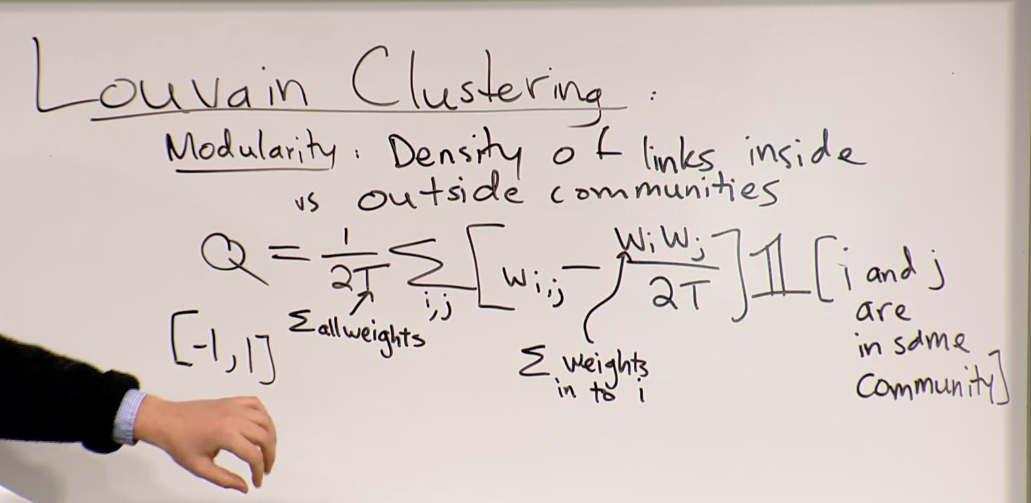 Louvain Clustering :
Modularity : Density of links inside
vs outside communities
Q = 1/2T Σ i,j [ w i,j − W i W j / 2T ] 𝟙 [ i and j
are
in same
community ]
[-1, 1]
Σ all weights
Σ weights
in to i